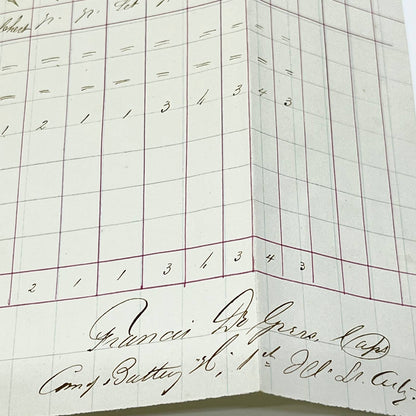 1 2 1 1 3 4 3 4 3
2 1 1 3 4 3 4 3
Francis De Gress. Capt
Comg. Battery "H", 1st Ill. Lt. Arty